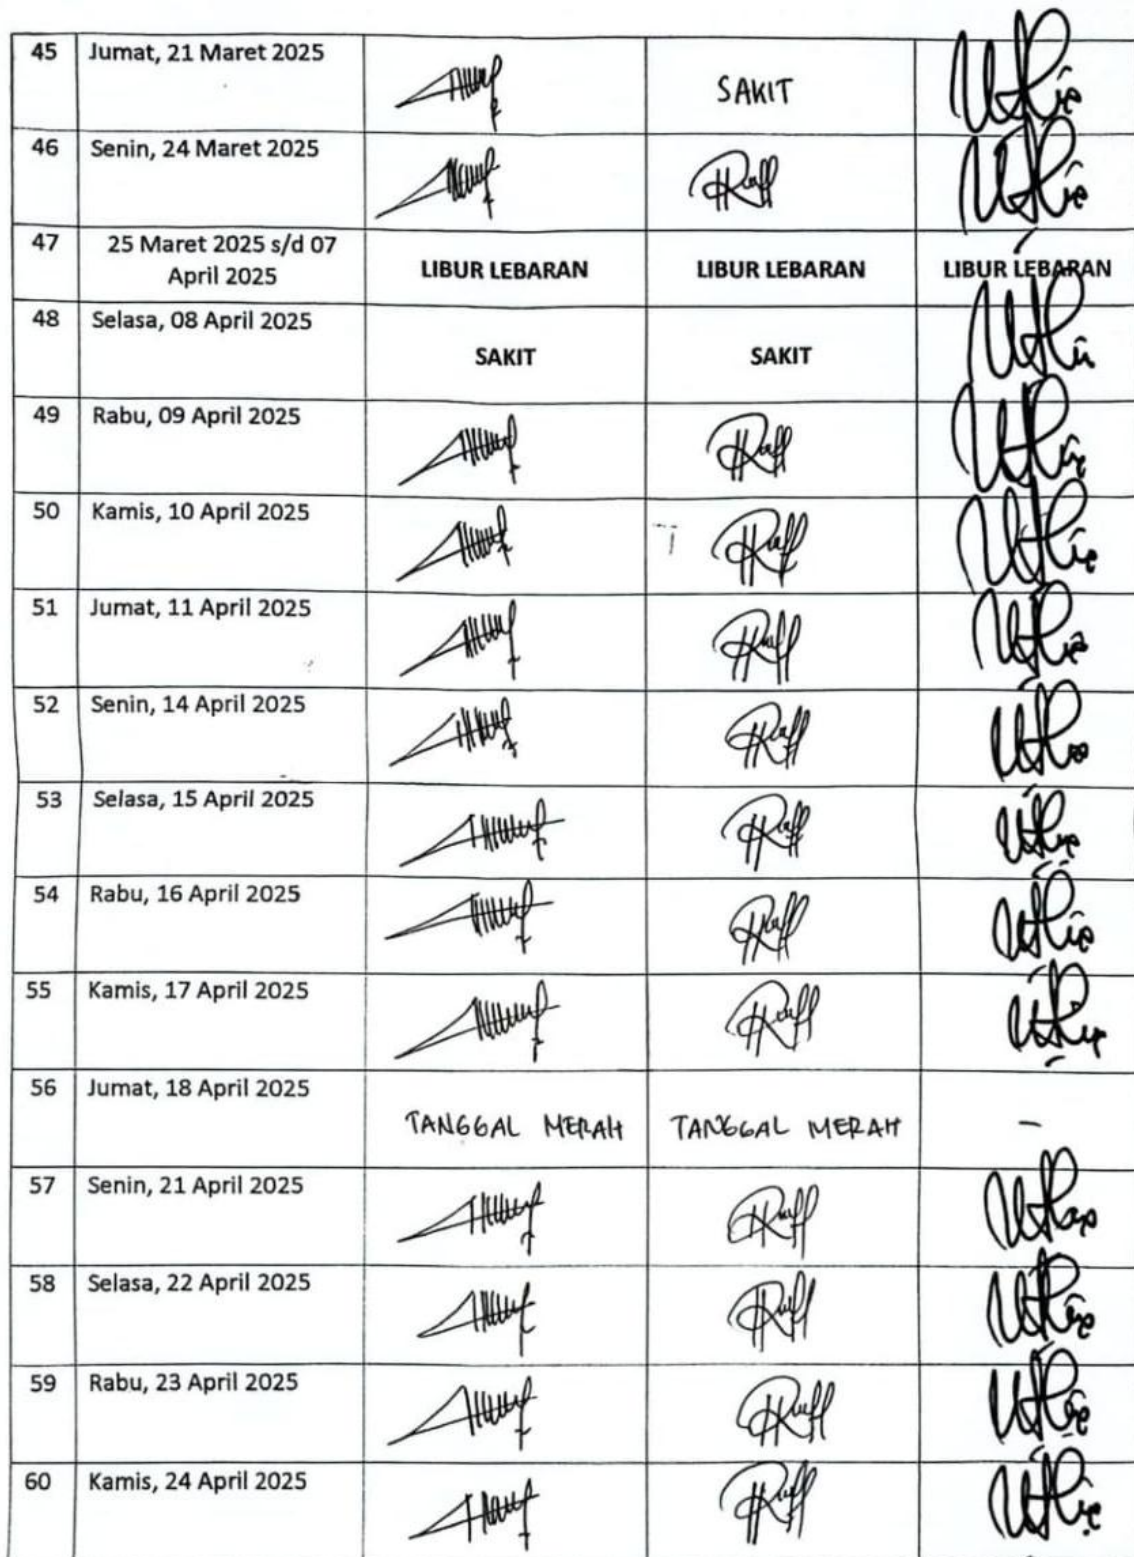 45 Jumat, 21 Maret 2025 SAKIT
46 Senin, 24 Maret 2025
47 25 Maret 2025 s/d 07 April 2025 LIBUR LEBARAN LIBUR LEBARAN LIBUR LEBARAN
48 Selasa, 08 April 2025 SAKIT SAKIT
49 Rabu, 09 April 2025
50 Kamis, 10 April 2025
51 Jumat, 11 April 2025
52 Senin, 14 April 2025
53 Selasa, 15 April 2025
54 Rabu, 16 April 2025
55 Kamis, 17 April 2025
56 Jumat, 18 April 2025 TANGGAL MERAH TANGGAL MERAH -
57 Senin, 21 April 2025
58 Selasa, 22 April 2025
59 Rabu, 23 April 2025
60 Kamis, 24 April 2025